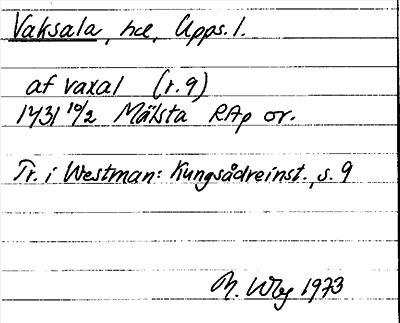 Vaksala, hd, Upps. l.
af vaxal (r. 9)
1431 10/2 Mälsta RAp or.
Tr. i Westman: Kungsådreinst., s. 9
M. Wbg 1973